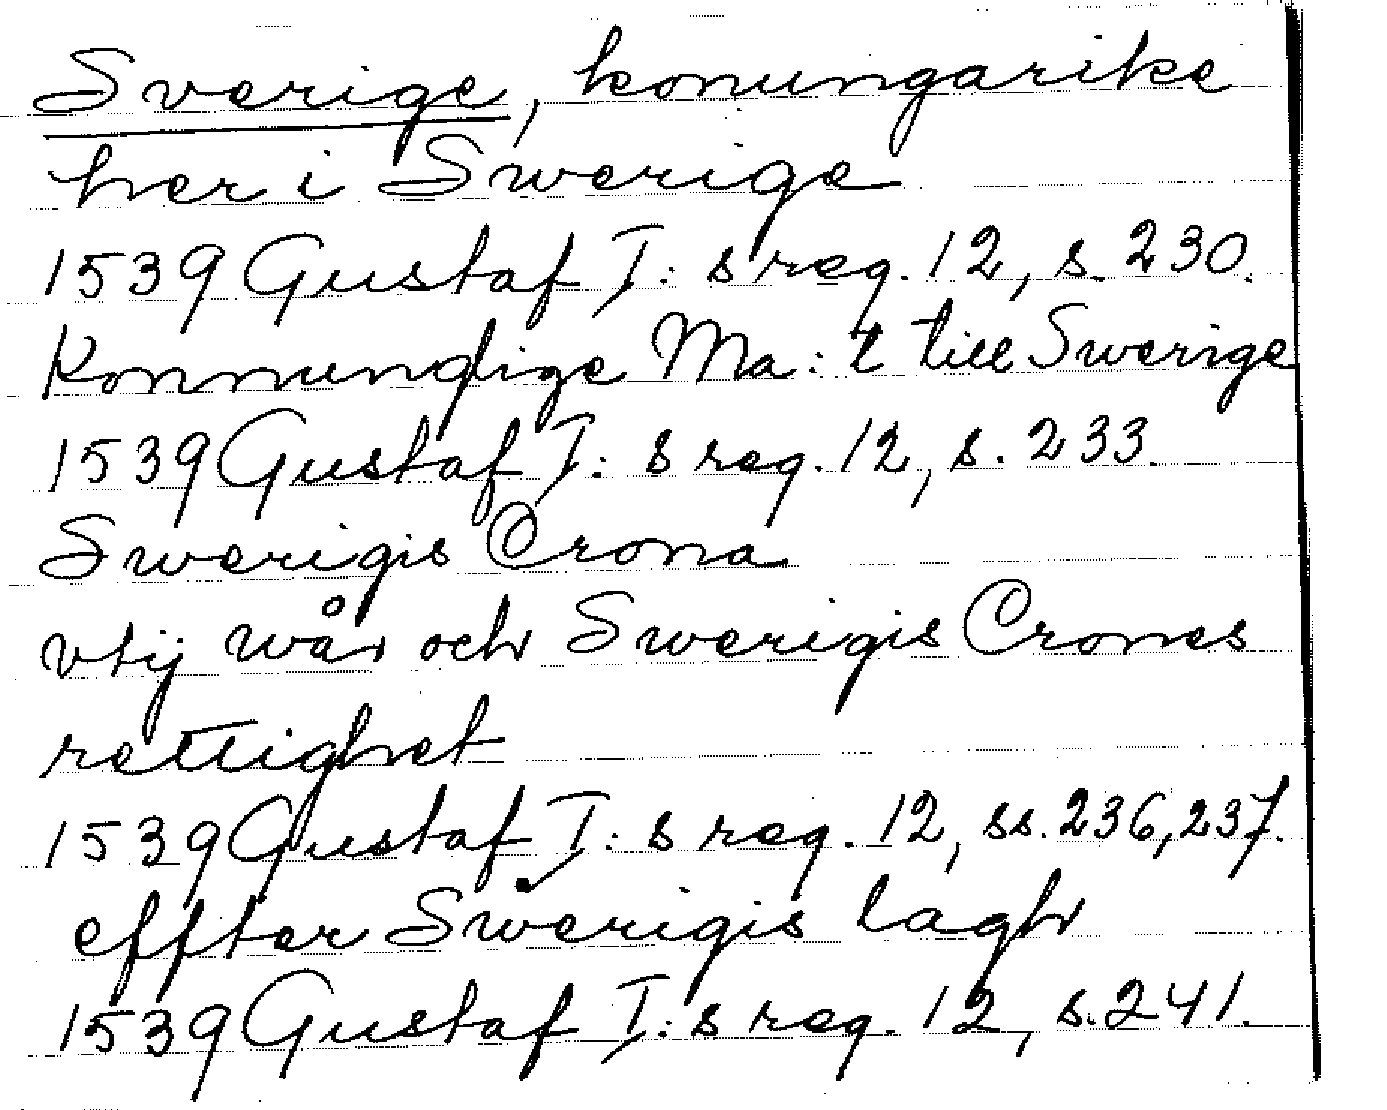 Sverige, konungarike
her i Swerige
1539 Gustaf I: s reg. 12, s. 230.
Konnungige Ma:t till Swerige
1539 Gustaf I: s reg. 12, s. 233.
Swerigis Crona
vtij wår och Swerigis Crones
rettighet
1539 Gustaf I: s reg. 12, ss. 236, 237.
effter Swerigis lagh
1539 Gustaf I: s reg. 12, s. 241.